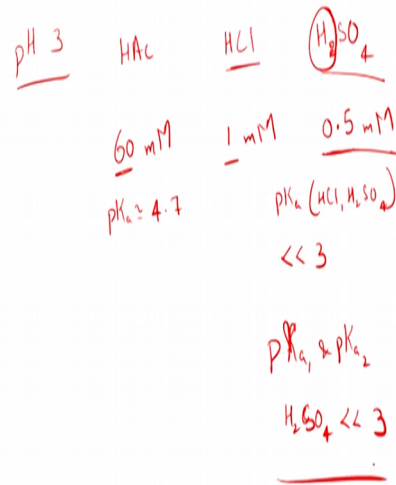 pH 3 HAc HCl H₂SO₄
60 mM 1 mM 0.5 mM
pKₐ ≈ 4.7 pKₐ (HCl, H₂SO₄)
<< 3
pKₐ₁ & pKₐ₂
H₂SO₄ << 3